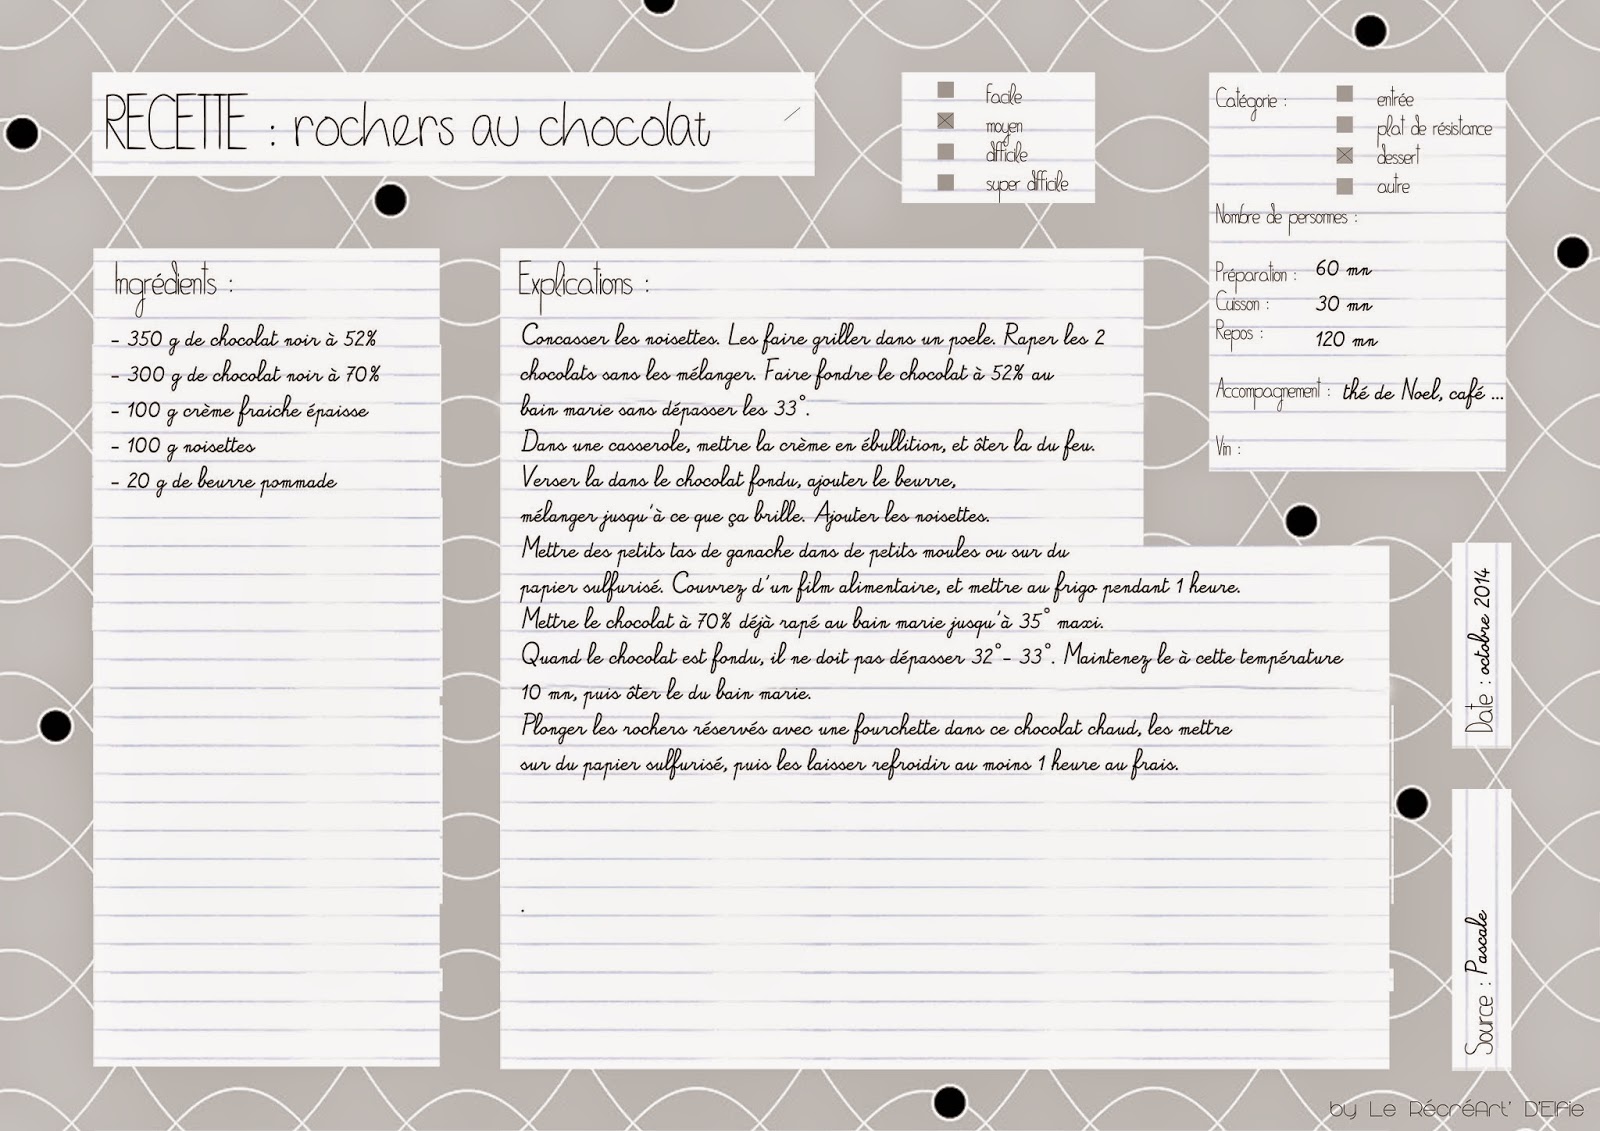 RECETTE : rochers au chocolat
facile
moyen
difficile
super difficile
Catégorie :
entrée
plat de résistance
dessert
autre
Nombre de personnes :
Préparation : 60 mn
Cuisson : 30 mn
Repos : 120 mn
Accompagnement : thé de Noel, café ...
Vin :
Ingrédients :
- 350 g de chocolat noir à 52%
- 300 g de chocolat noir à 70%
- 100 g crème fraiche épaisse
- 100 g noisettes
- 20 g de beurre pommade
Explications :
Concasser les noisettes. Les faire griller dans un poele. Raper les 2
chocolats sans les mélanger. Faire fondre le chocolat à 52% au
bain marie sans dépasser les 33°.
Dans une casserole, mettre la crème en ébullition, et ôter la du feu.
Verser la dans le chocolat fondu, ajouter le beurre,
mélanger jusqu'à ce que ça brille. Ajouter les noisettes.
Mettre des petits tas de ganache dans de petits moules ou sur du
papier sulfurisé. Couvrez d'un film alimentaire, et mettre au frigo pendant 1 heure.
Mettre le chocolat à 70% déjà rapé au bain marie jusqu'à 35° maxi.
Quand le chocolat est fondu, il ne doit pas dépasser 32°- 33°. Maintenez le à cette température
10 mn, puis ôter le du bain marie.
Plonger les rochers réservés avec une fourchette dans ce chocolat chaud, les mettre
sur du papier sulfurisé, puis les laisser refroidir au moins 1 heure au frais.
.
Date : octobre 2014
Source : Pascale
by Le RécréArt' D'Elfie